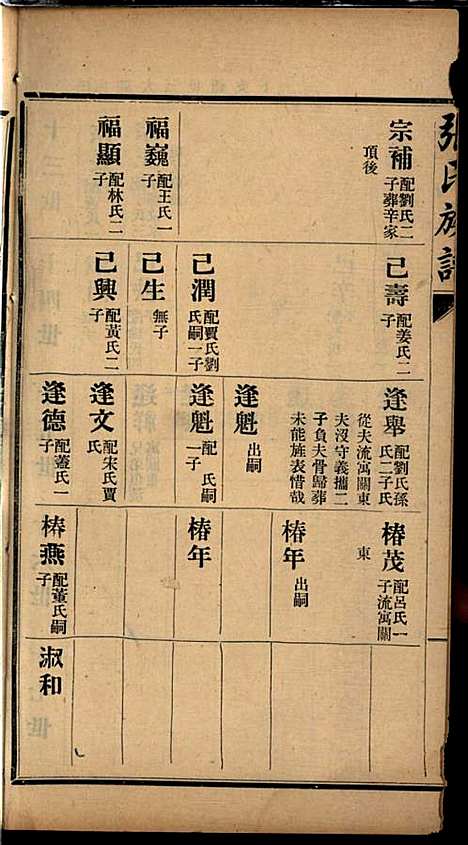 張氏族譜
宗補 配劉氏二子葬辛家頂後
福巍 配王氏一子
福顯 配林氏二子
己壽 配姜氏二子
己潤 配賈氏劉氏嗣一子
己生 無子
己興 配黃氏二子
逢舉 配劉氏孫氏二子氏從夫流寓關東夫沒守義攜二子負夫骨歸葬未能旌表惜哉
逢魁 出嗣
逢魁 配 氏嗣一子
逢文 配宋氏賈氏
逢德 配蓋氏一子
椿茂 配呂氏一子流寓關東
椿年 出嗣
椿年
椿燕 配董氏嗣子
淑和